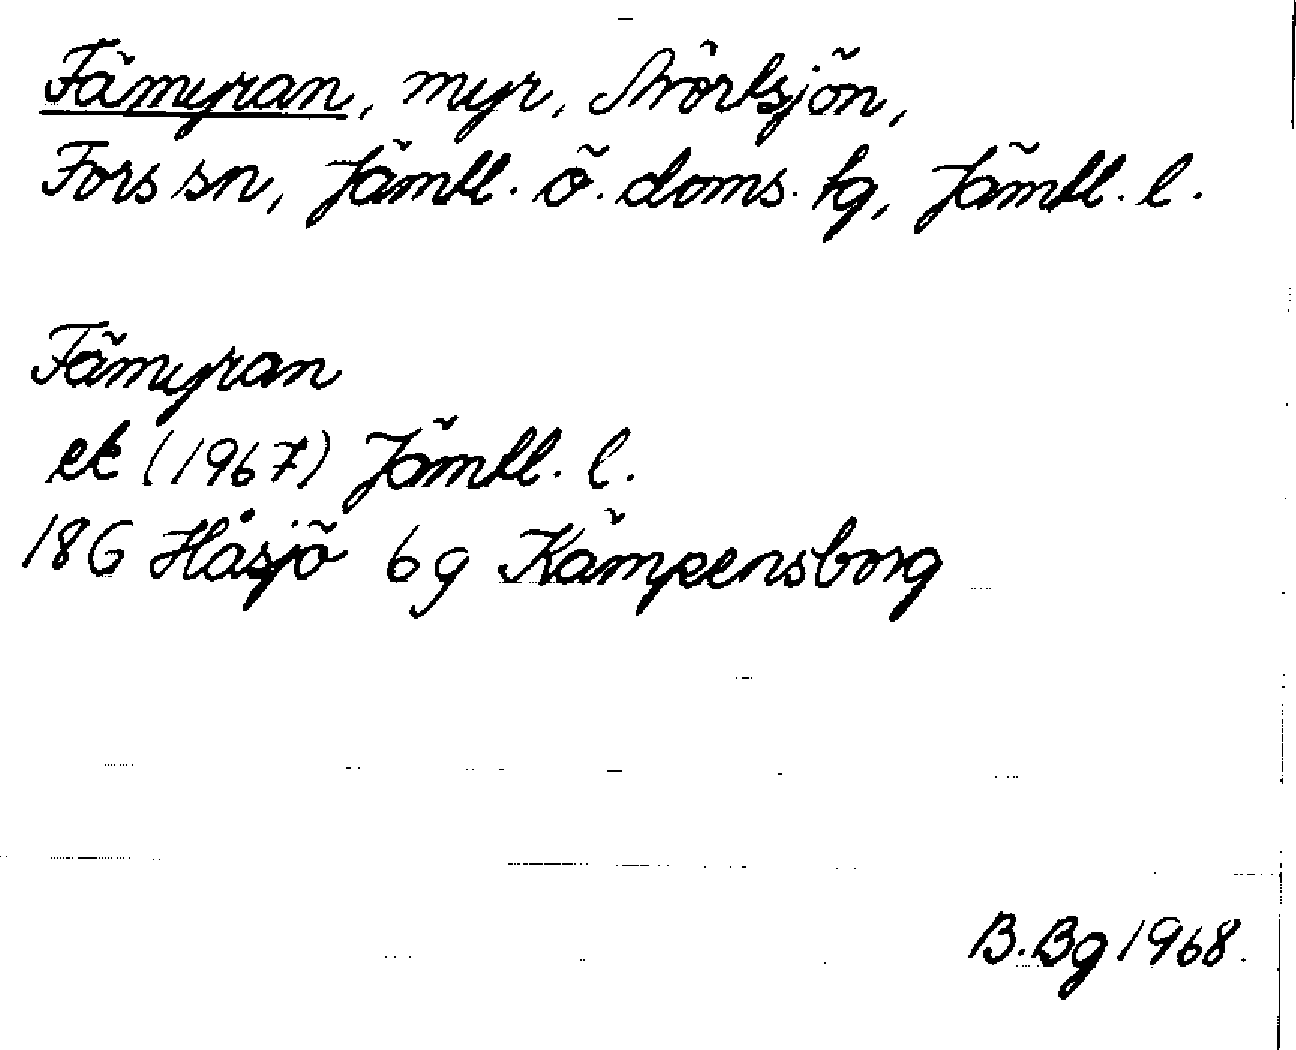 Fämyran, myr, Mörtsjön,
Fors sn, Jämtl. ö. doms. tg, Jämtl. l.
Fämyran
ek (1967) Jämtl. l.
18G Håsjö 6g Kämpensborg
B.Bg 1968.